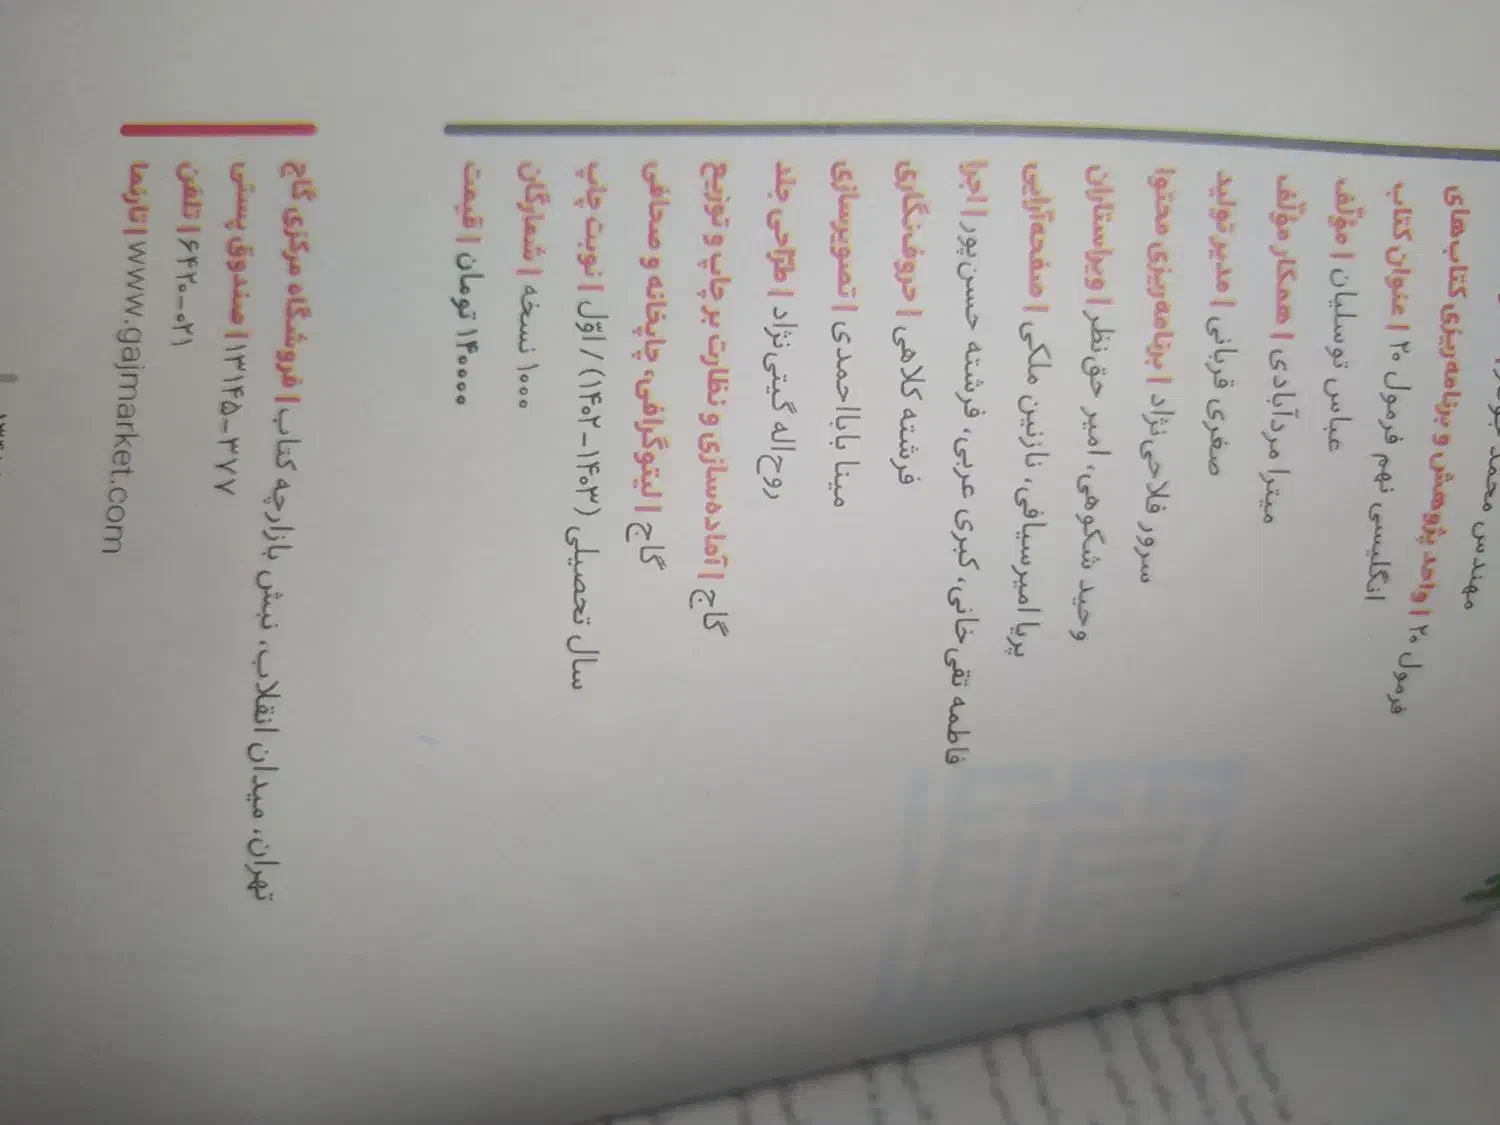 مهندس محمد
واحد پژوهش و برنامه‌ریزی کتاب‌های فرمول ۲۰ |
عنوان کتاب | فرمول ۲۰ انگلیسی نهم
مؤلّف | عباس توسلیان
همکار مؤلّف | میترا مردآبادی
مدیر تولید | صغری قربانی
برنامه‌ریزی محتوا | سرور فلاحی‌نژاد
ویراستاران | وحید شکوهی، امیر حق‌نظر
صفحه‌آرایی | پریا امیرسیافی، نازنین ملکی
اجرا | فاطمه تقی‌خانی، کبری عربی، فرشته حسن‌پور
حروف‌نگاری | فرشته کلاهی
تصویرسازی | مینا بابااحمدی
طرّاحی جلد | روح‌اله گیتی‌نژاد
آماده‌سازی و نظارت بر چاپ و توزیع | گاج
لیتوگرافی، چاپخانه و صحافی | گاج
نوبت چاپ | اوّل / (سال تحصیلی ۱۴۰۳-۱۴۰۲)
شمارگان | ۱۰۰۰ نسخه
قیمت | ۱۴۰۰۰۰ تومان
فروشگاه مرکزی گاج | تهران، میدان انقلاب، نبش بازارچه کتاب
صندوق پستی | ۱۳۱۴۵-۳۷۷
تلفن | ۰۲۱-۶۴۲۰
تارنما | www.gajmarket.com